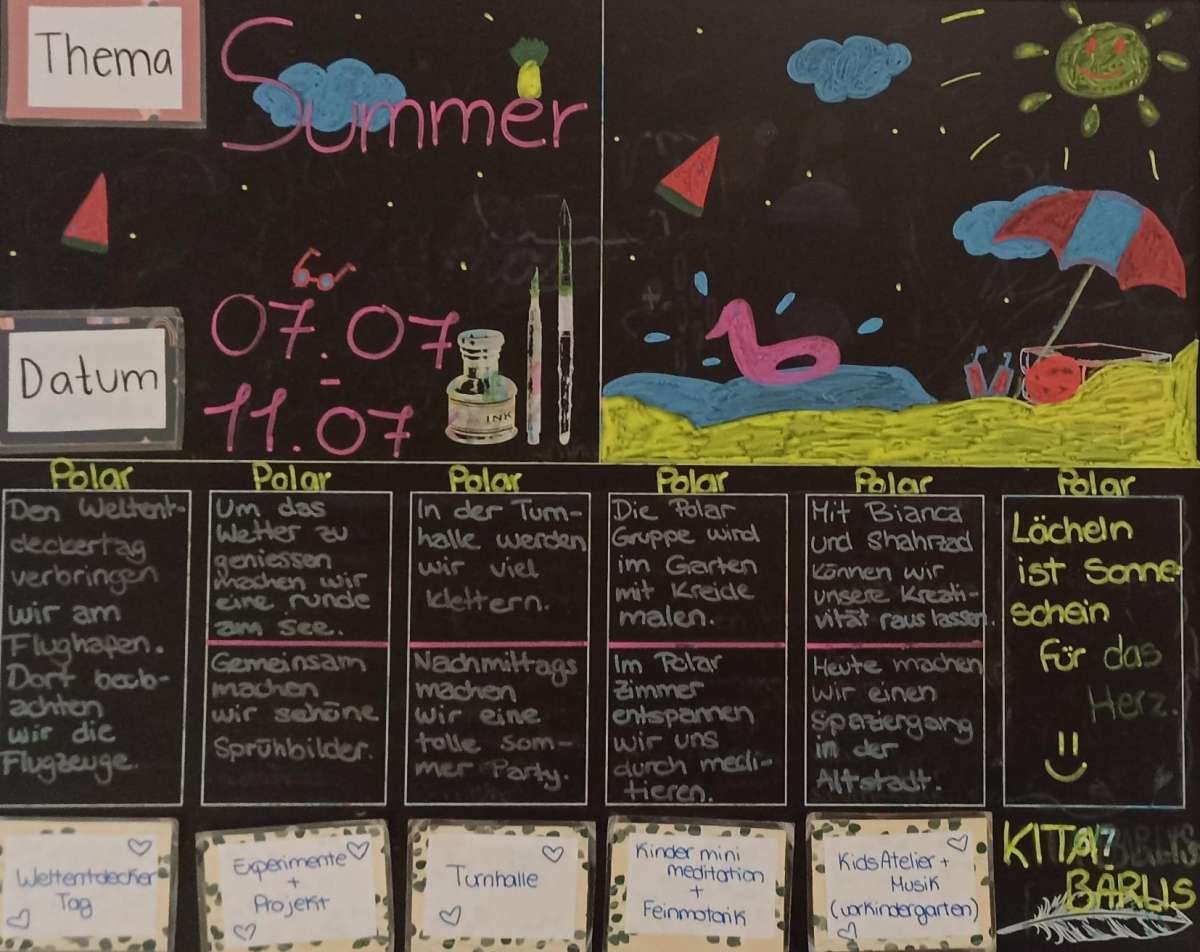 Thema
Summer
Datum
07.07
-
11.07
INK
Polar
Den Weltent-
deckertag
verbringen
wir am
Flughafen.
Dort beob-
achten
wir die
Flugzeuge.
Weltentdecker
Tag
Polar
Um das
Wetter zu
geniessen
machen wir
eine runde
am See.
Gemeinsam
machen
wir schöne
Sprühbilder.
Experimente
+
Projekt
Polar
In der Turn-
halle werden
wir viel
klettern.
Nachmittags
machen
wir eine
tolle Som-
mer Party.
Turnhalle
Polar
Die Polar
Gruppe wird
im Garten
mit Kreide
malen.
Im Polar
zimmer
entspannen
wir uns
durch medi-
tieren.
Kinder mini
meditation
+
Feinmotorik
Polar
Mit Bianca
und Shahrzad
können wir
unsere Kreati-
vität raus lassen.
Heute machen
wir einen
Spaziergang
in der
Altstadt.
Kids Atelier +
Musik
(vorkindergarten)
Polar
Lächeln
ist Sonne
schein
für das
Herz.
KITA
BÄRLIS